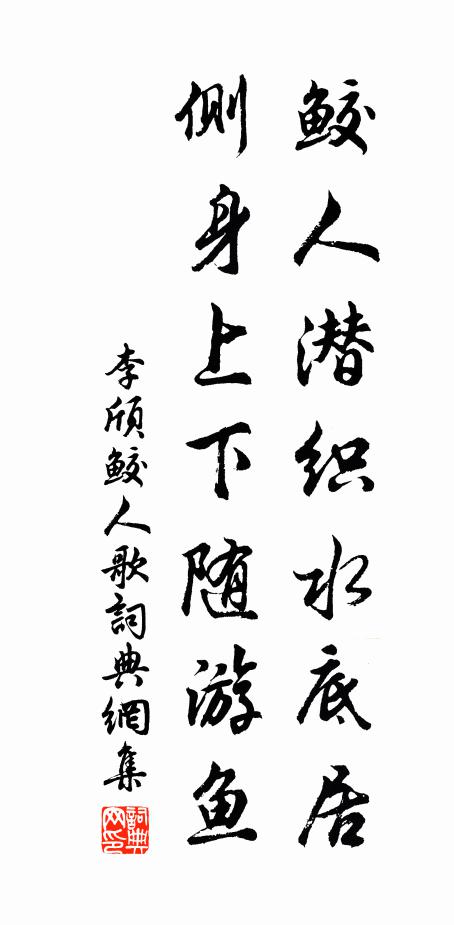 鲛人潜织水底居
侧身上下随游鱼
李颀鲛人歌詞典網集
詞典网印